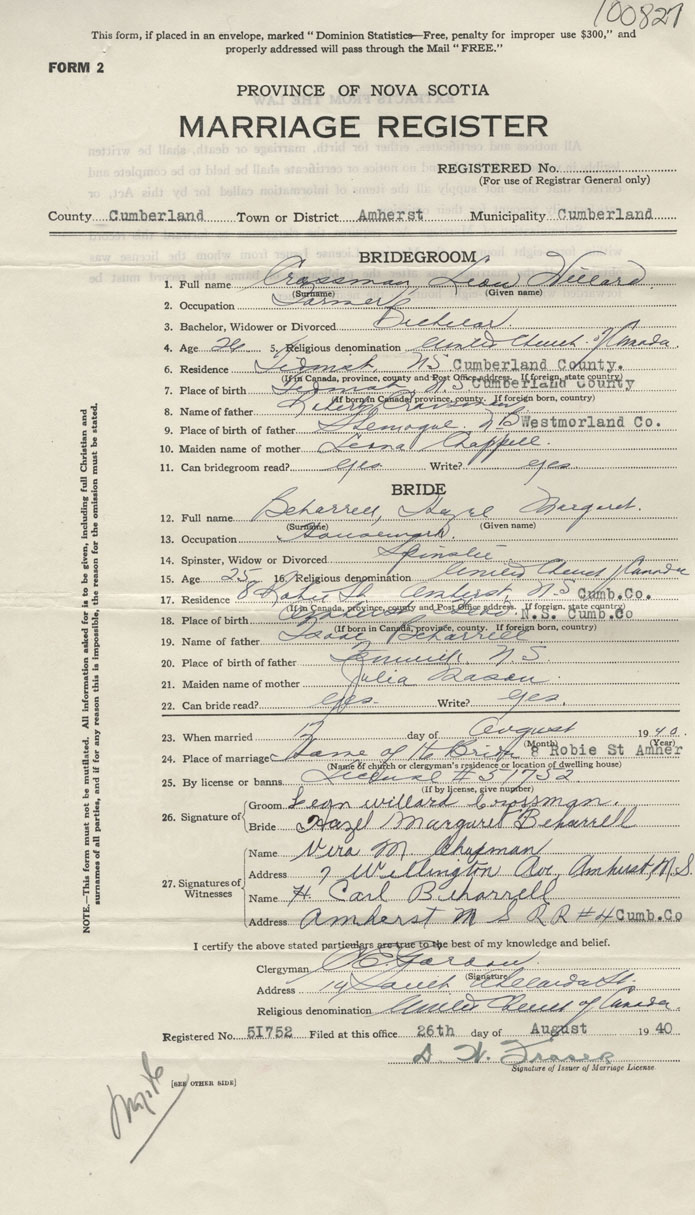 100827
This form, if placed in an envelope, marked "Dominion Statistics—Free, penalty for improper use $300," and
properly addressed will pass through the Mail "FREE."
FORM 2
PROVINCE OF NOVA SCOTIA
MARRIAGE REGISTER
REGISTERED No.
(For use of Registrar General only)
County Cumberland Town or District Amherst Municipality Cumberland
BRIDEGROOM
1. Full name Crossman, Leon Willard
(Surname) (Given name)
2. Occupation Farmer
3. Bachelor, Widower or Divorced Bachelor.
4. Age 26 5. Religious denomination United Church of Canada.
6. Residence Tidnish, N.S Cumberland County.
(If in Canada, province, county and Post Office address. If foreign, state country)
7. Place of birth Tidnish, N.S Cumberland County
(If born in Canada, province, county. If foreign born, country)
8. Name of father Crossman
9. Place of birth of father Shemogue, N B Westmorland Co.
10. Maiden name of mother Leona Chappell.
11. Can bridegroom read? yes Write? yes
BRIDE
12. Full name Beharrell, Hazel Margaret.
(Surname) (Given name)
13. Occupation Housework.
14. Spinster, Widow or Divorced Spinster
15. Age 25 16. Religious denomination United Church of Canada
17. Residence 8 Robie St Amherst, N.S Cumb.Co.
(If in Canada, province, county and Post Office address. If foreign, state country)
18. Place of birth N.S. Cumb.Co
(If born in Canada, province, county. If foreign born, country)
19. Name of father Isaac Beharrell
20. Place of birth of father N.S.
21. Maiden name of mother Julia
22. Can bride read? yes. Write? yes.
23. When married 12 day of August 1940.
(Month) (Year)
24. Place of marriage Home of the Bride 8 Robie St Amher
(Name of church or clergyman's residence or location of dwelling house)
25. By license or banns License #51752
(If by license, give number)
26. Signature of
Groom Leon Willard Crossman.
Bride Hazel Margaret Beharrell
27. Signatures of Witnesses
Name Vera M Chapman
Address 7 Wellington Ave, Amherst N.S.
Name H. Carl Beharrell
Address Amherst N S R R #4 Cumb.Co
I certify the above stated particulars are true to the best of my knowledge and belief.
Clergyman
(Signature)
Address 19 South St.
Religious denomination United Church of Canada.
Registered No. 5I752 Filed at this office 26th day of August 1940
D. W. Fraser
Signature of Issuer of Marriage License
[SEE OTHER SIDE]
NOTE.—This form must not be mutilated. All information asked for is to be given, including full Christian and
surnames of all parties, and if for any reason this is impossible, the reason for the omission must be stated.